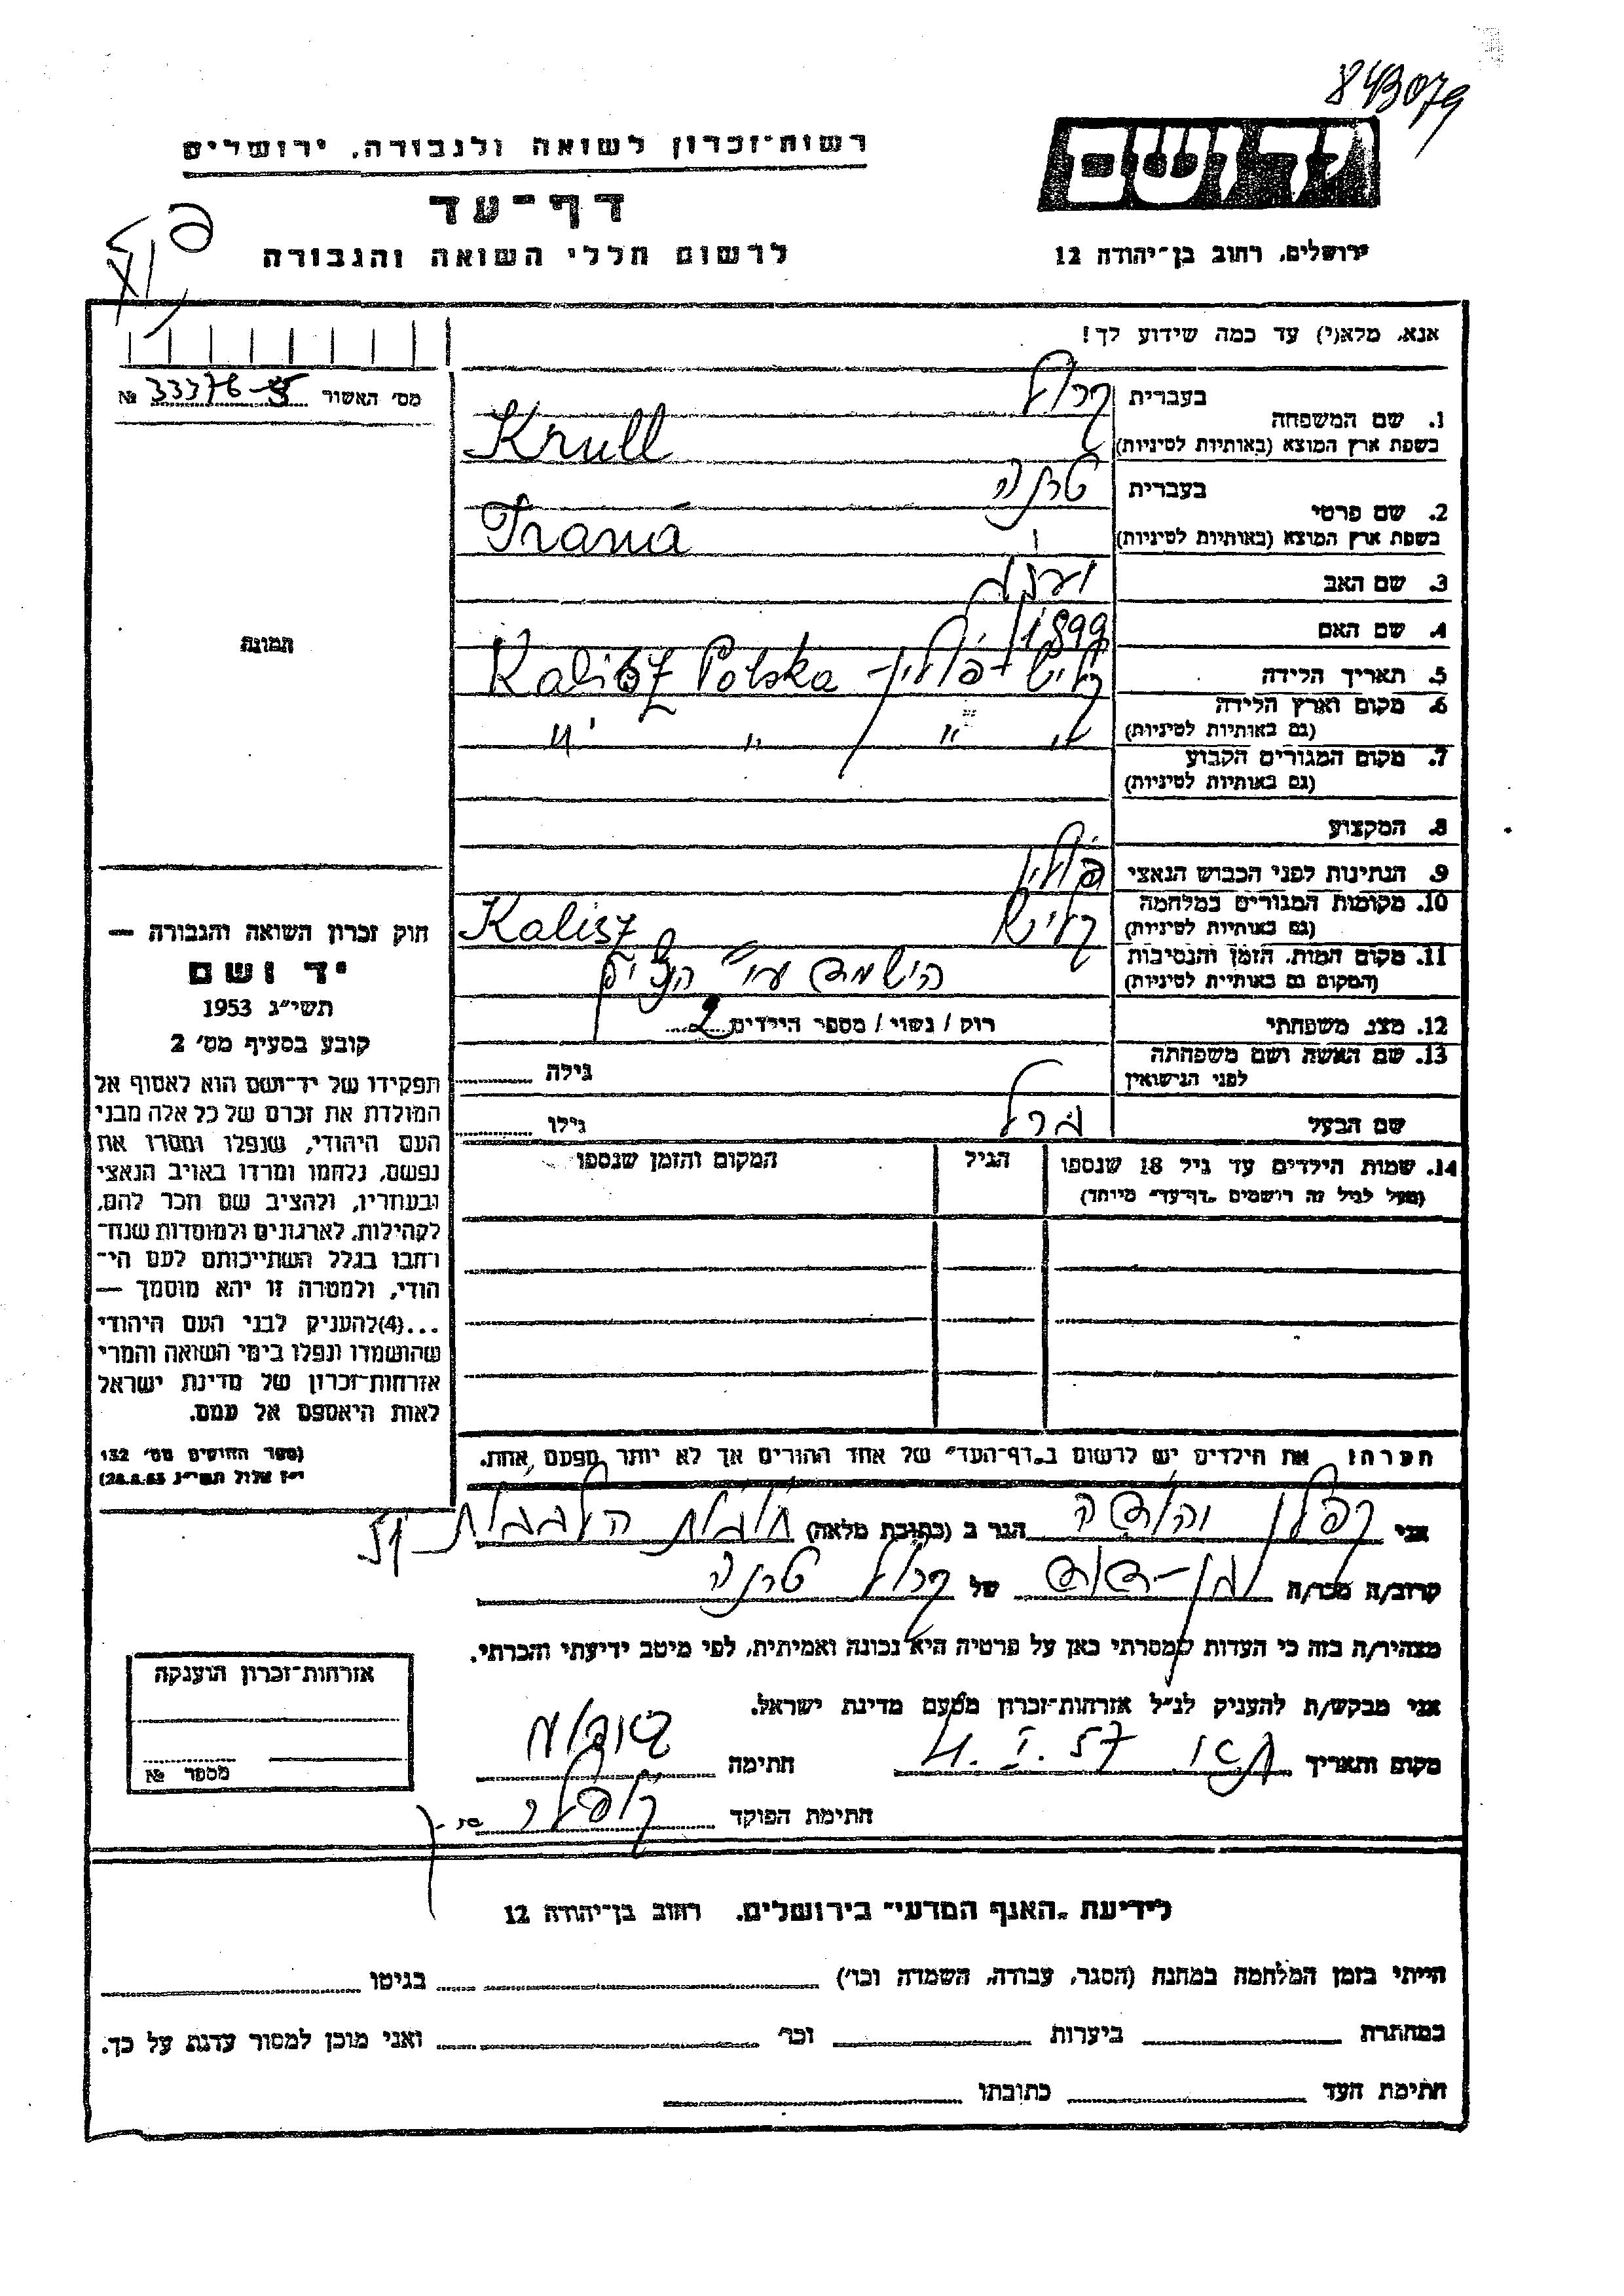 843079
רשות־זכרון לשואה ולגבורה, ירושלים
יד ושם
דף־עד
לרשום חללי השואה והגבורה
ירושלים, רחוב בן־יהודה 12
אנא, מלא(י) עד כמה שידוע לך!
מס׳ האשור № 33376
1. שם המשפחה
בעברית קרול
בשפת ארץ המוצא (באותיות לטיניות) Krull
2. שם פרטי
בעברית טרנה
בשפת ארץ המוצא (באותיות לטיניות) Trana
3. שם האב
4. שם האם
5. תאריך הלידה 1899
6. מקום וארץ הלידה
(גם באותיות לטיניות) קליש - פולין Kalisz Polska
7. מקום המגורים הקבוע
(גם באותיות לטיניות) " " " "
8. המקצוע
9. הנתינות לפני הכבוש הנאצי פולין
10. מקומות המגורים במלחמה
(גם באותיות לטיניות) קליש Kalisz
11. מקום המות, הזמן והנסיבות
(המקום גם באותיית לטיניות) הישמד ע״י הנצים
12. מצב משפחתי רוק / נשוי / מספר הילדים 2
13. שם האשה ושם משפחתה
לפני הנישואין
גילה
שם הבעל
גילו
14. שמות הילדים עד גיל 18 שנספו
(מעל לגיל זה רושמים „דף־עד״ מיוחד)
הגיל
המקום והזמן שנספו
תמונה
חוק זכרון השואה והגבורה —
יד ושם
תשי״ג 1953
קובע בסעיף מס׳ 2
תפקידו של יד־ושם הוא לאסוף אל
המולדת את זכרם של כל אלה מבני
העם היהודי, שנפלו ומסרו את
נפשם, נלחמו ומרדו באויב הנאצי
ובעוזריו, ולהציב שם וזכר להם,
לקהילות, לארגונים ולמוסדות שנח־
רחבו בגלל השתייכותם לעם הי־
הודי, ולמטרה זו יהא מוסמך —
...(4)להעניק לבני העם היהודי
שהושמדו ונפלו בימי השואה והמרי
אזרחות־זכרון של מדינת ישראל
לאות היאספם אל עמם.
(ספר החוקים מס׳ 132
י״ז אלול תשי״ג 28.8.53)
הערה: את הילדים יש לרשום ב„דף־העד״ של אחד ההורים אך לא יותר מפעם אחת.
אני קפלן יהודה הגר ב (כתובת מלאה)
קרוב/ה מכר/ה בן-דוד של קרול טרנה
מצהיר/ה בזה כי העדות שמסרתי כאן על פרטיה היא נכונה ואמיתית, לפי מיטב ידיעתי והכרתי.
אני מבקש/ת להעניק לנ״ל אזרחות־זכרון מטעם מדינת ישראל.
מקום ותאריך 4. I. 57 חתימה
חתימת הפוקד
אזרחות־זכרון הוענקה
מספר №
לידיעת „האגף המדעי״ בירושלים, רחוב בן־יהודה 12
הייתי בזמן המלחמה במחנה (הסגר, עבודה, השמדה וכו׳) בגיטו
במחתרת ביערות וכו׳ ואני מוכן למסור עדות על כך.
חתימת העד כתובתו